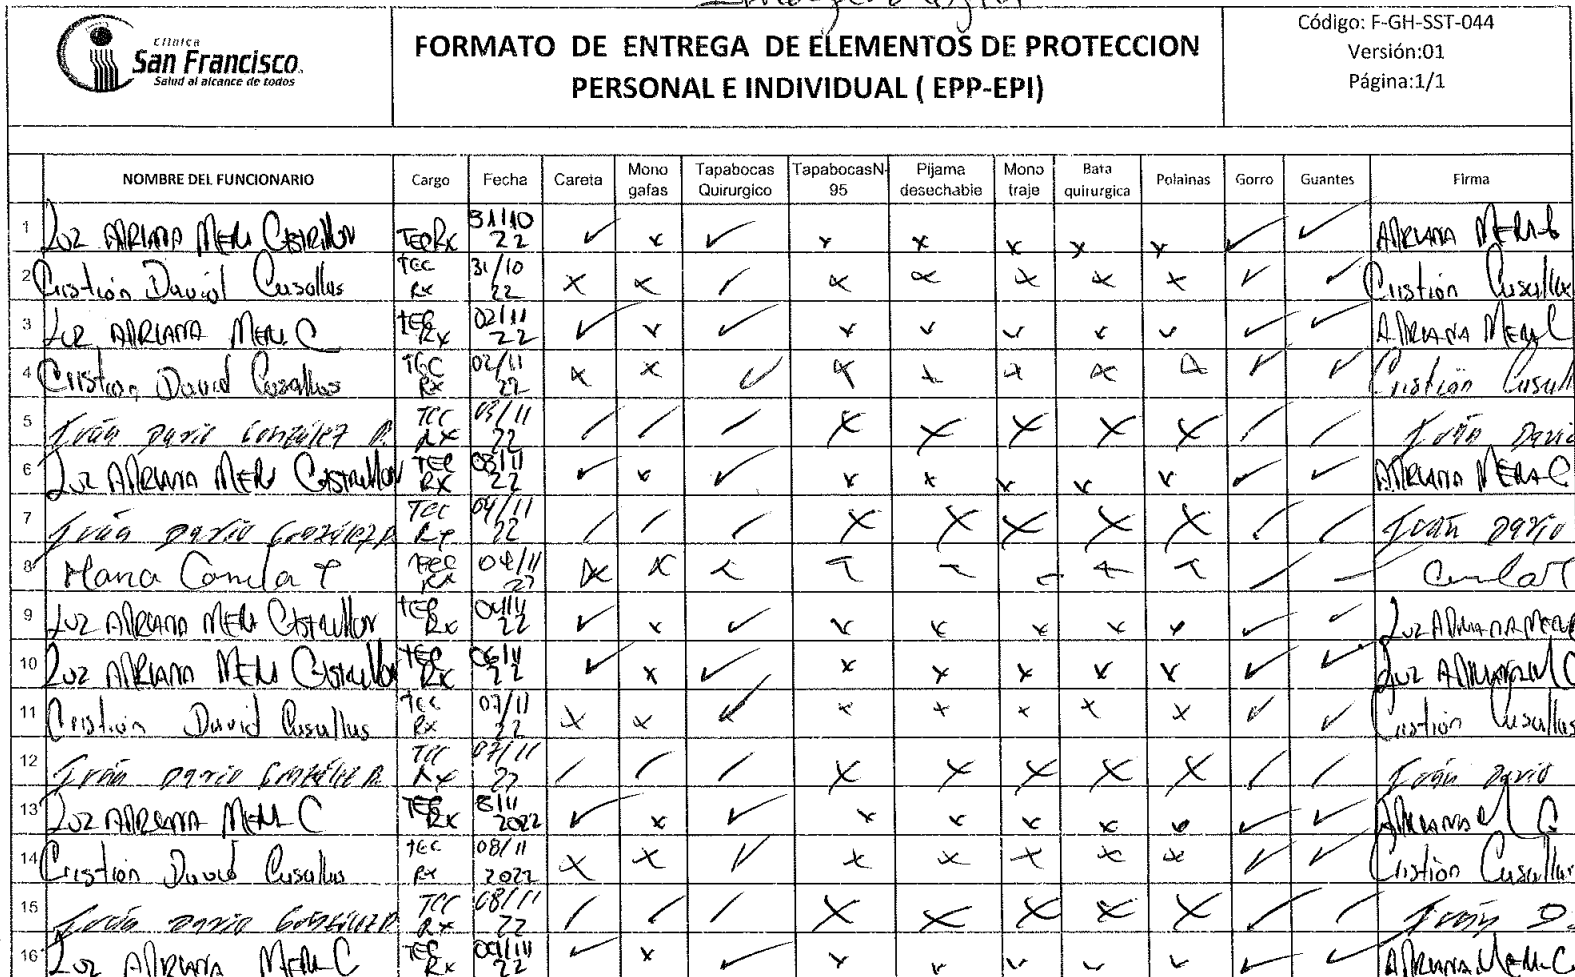 Clínica
San Francisco.
Salud al alcance de todos
FORMATO DE ENTREGA DE ELEMENTOS DE PROTECCION
PERSONAL E INDIVIDUAL ( EPP-EPI)
Código: F-GH-SST-044
Versión:01
Página:1/1
NOMBRE DEL FUNCIONARIO Cargo Fecha Careta Mono gafas Tapabocas Quirurgico TapabocasN-95 Pijama desechable Mono traje Bata quirurgica Polainas Gorro Guantes Firma
1 Luz ADRIANA MERA CASTRILLON TEC Rx 31/10 22 ✓ x ✓ x x x x x ✓ ✓ ADRIANA MERA C
2 Cristian David Casallas TEC Rx 31/10 22 x x ✓ x x x x x ✓ ✓ Cristian Casallas
3 Luz ADRIANA MERA C TEC Rx 02/11 22 ✓ x ✓ x x x x x ✓ ✓ ADRIANA MERA C
4 Cristian David Casallas TEC Rx 02/11 22 x x ✓ x x x x x ✓ ✓ Cristian Casall
5 Iván Dario González R. TEC Rx 03/11 22 ✓ ✓ ✓ x x x x x ✓ ✓ Iván Dario
6 Luz ADRIANA MERA CASTRILLON TEC Rx 03/11 22 ✓ x ✓ x x x x x ✓ ✓ ADRIANA MERA C
7 Iván Dario González R. TEC Rx 04/11 22 ✓ ✓ ✓ x x x x x ✓ ✓ Iván Dario
8 Maria Camila T TEC Rx 04/11 22 x x x x x x x x ✓ ✓ Camila T
9 Luz ADRIANA MERA CASTRILLON TEC Rx 04/11 22 ✓ x ✓ x x x x x ✓ ✓ Luz ADRIANA MERA
10 Luz ADRIANA MERA CASTRILLON TEC Rx 06/11 22 ✓ x ✓ x x x x x ✓ ✓ Luz ADRIANA M C
11 Cristian David Casallas TEC Rx 07/11 22 x x ✓ x x x x x ✓ ✓ Cristian Casallas
12 Iván Dario González R. TEC Rx 07/11 22 ✓ ✓ ✓ x x x x x ✓ ✓ Iván Dario
13 Luz ADRIANA MERA C TEC Rx 8/11 2022 ✓ x ✓ x x x x x ✓ ✓ ADRIANA M C
14 Cristian David Casallas TEC Rx 08/11 2022 x x ✓ x x x x x ✓ ✓ Cristian Casallas
15 Iván Dario González R. TEC Rx 08/11 22 ✓ ✓ ✓ x x x x x ✓ ✓ Iván D.
16 Luz ADRIANA MERA C TEC Rx 09/11 22 ✓ x ✓ x x x x x ✓ ✓ ADRIANA MERA C